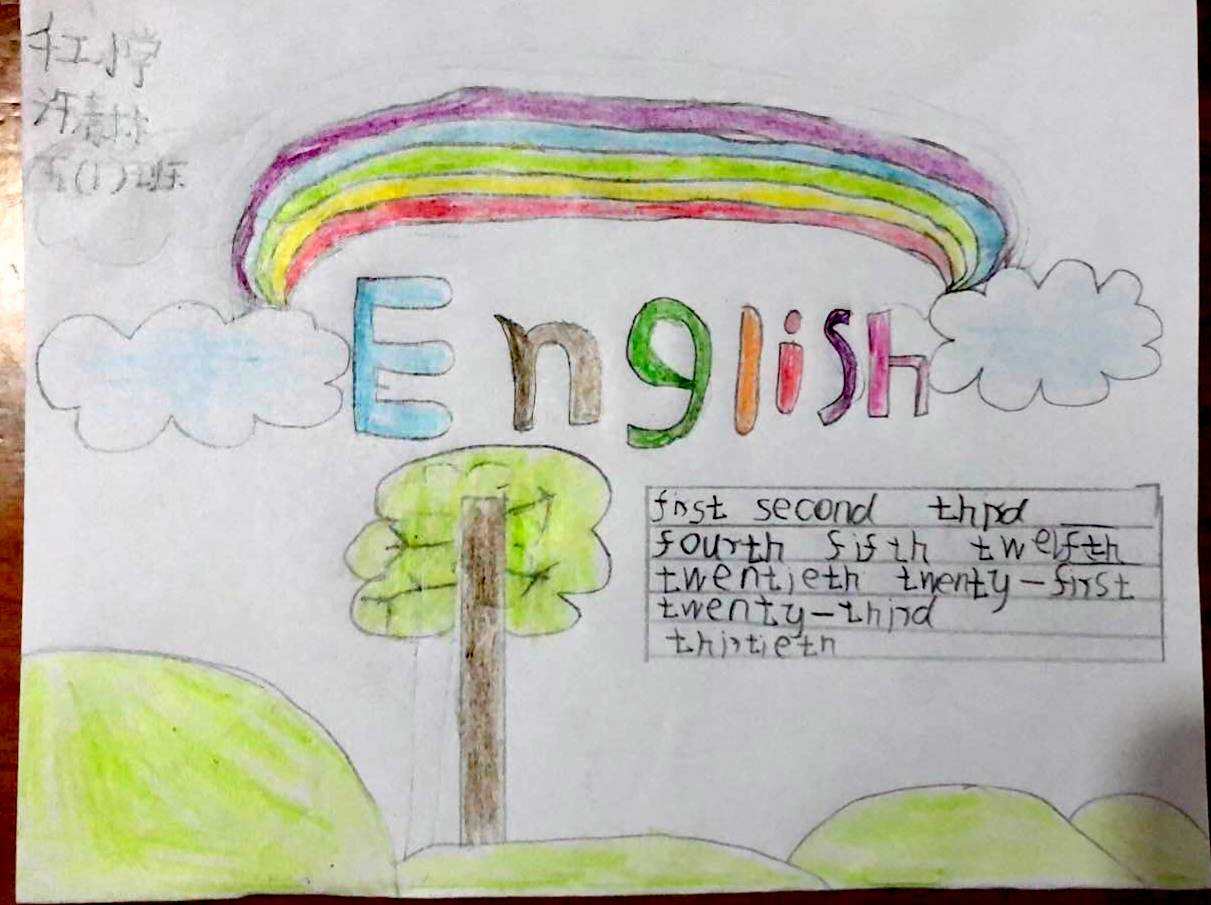 小学
五(1)班
English
first second third
fourth fifth twelfth
twentieth twenty-first
twenty-third
thirtieth